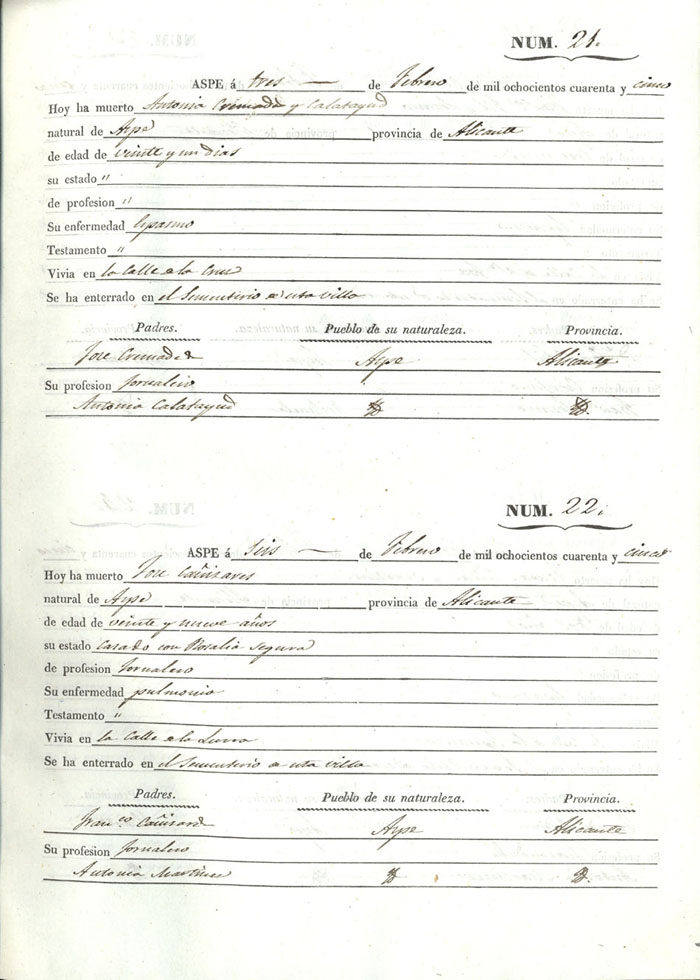 NUM. 21.
ASPE á tres de Febrero de mil ochocientos cuarenta y cinco
Hoy ha muerto Antonia Cremades y Calatayud
natural de Aspe provincia de Alicante
de edad de veinte y un dias
su estado "
de profesion "
Su enfermedad espasmo
Testamento "
Vivia en la Calle de la Cruz
Se ha enterrado en el Sementerio de esta villa
Padres. Pueblo de su naturaleza. Provincia.
Jose Cremades Aspe Alicante
Su profesion Jornalero
Antonia Calatayud
NUM. 22.
ASPE á Seis de Febrero de mil ochocientos cuarenta y cinco
Hoy ha muerto Jose Cañizares
natural de Aspe provincia de Alicante
de edad de veinte y nueve años
su estado Casado con Rosalia Segura
de profesion Jornalero
Su enfermedad pulmonia
Testamento "
Vivia en la Calle de la
Se ha enterrado en el Sementerio de esta villa
Padres. Pueblo de su naturaleza. Provincia.
Franco Cañizares Aspe Alicante
Su profesion Jornalero
Antonia Martinez